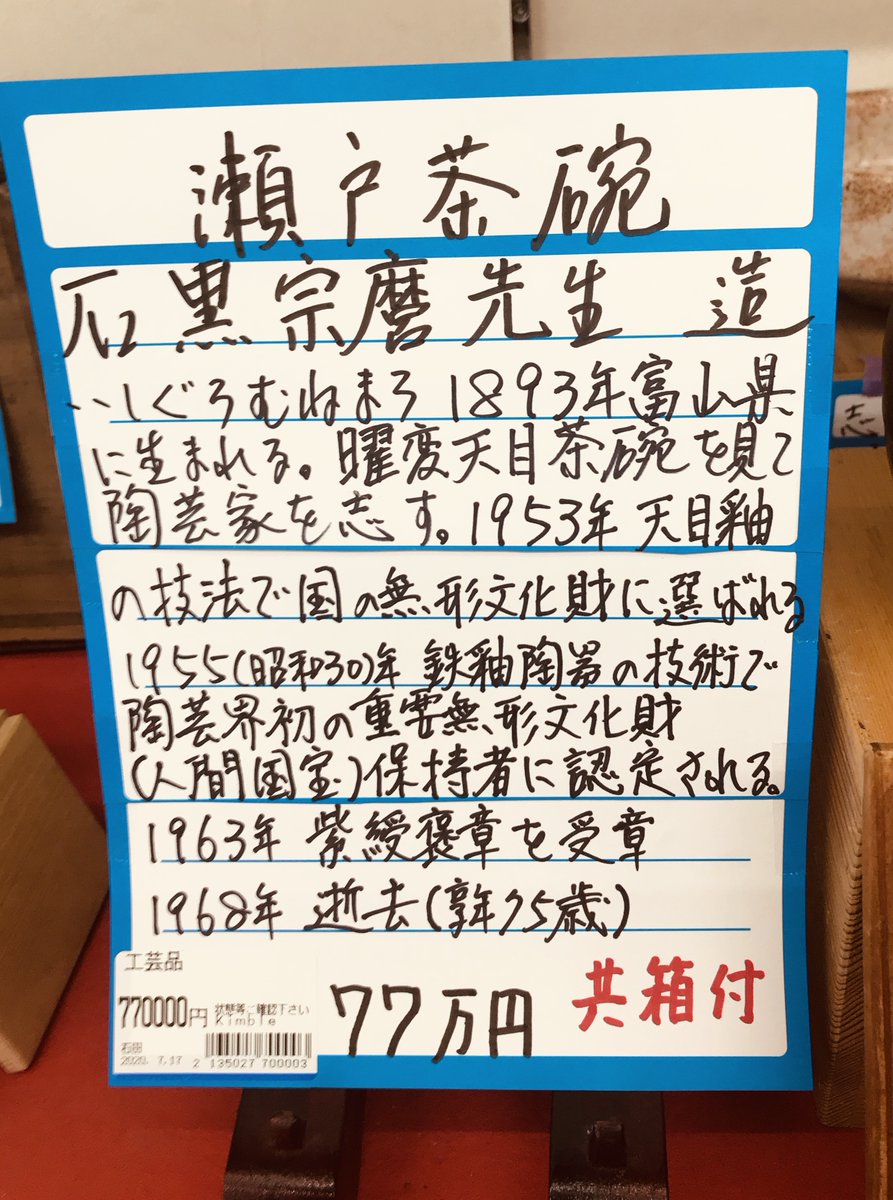 瀬戸茶碗
石黒宗麿先生 造
いしぐろむねまろ 1893年富山県
に生まれる。曜変天目茶碗を見て
陶芸家を志す。1953年 天目釉
の技法で国の無形文化財に選ばれる
1955(昭和30)年 鉄釉陶器の技術で
陶芸界初の重要無形文化財
(人間国宝)保持者に認定される。
1963年 紫綬褒章を受章
1968年 逝去(享年75歳)
工芸品
770000円 状態等ご確認下さい
Kimble
2020. 7.17 2 135027 700003
77万円 共箱付